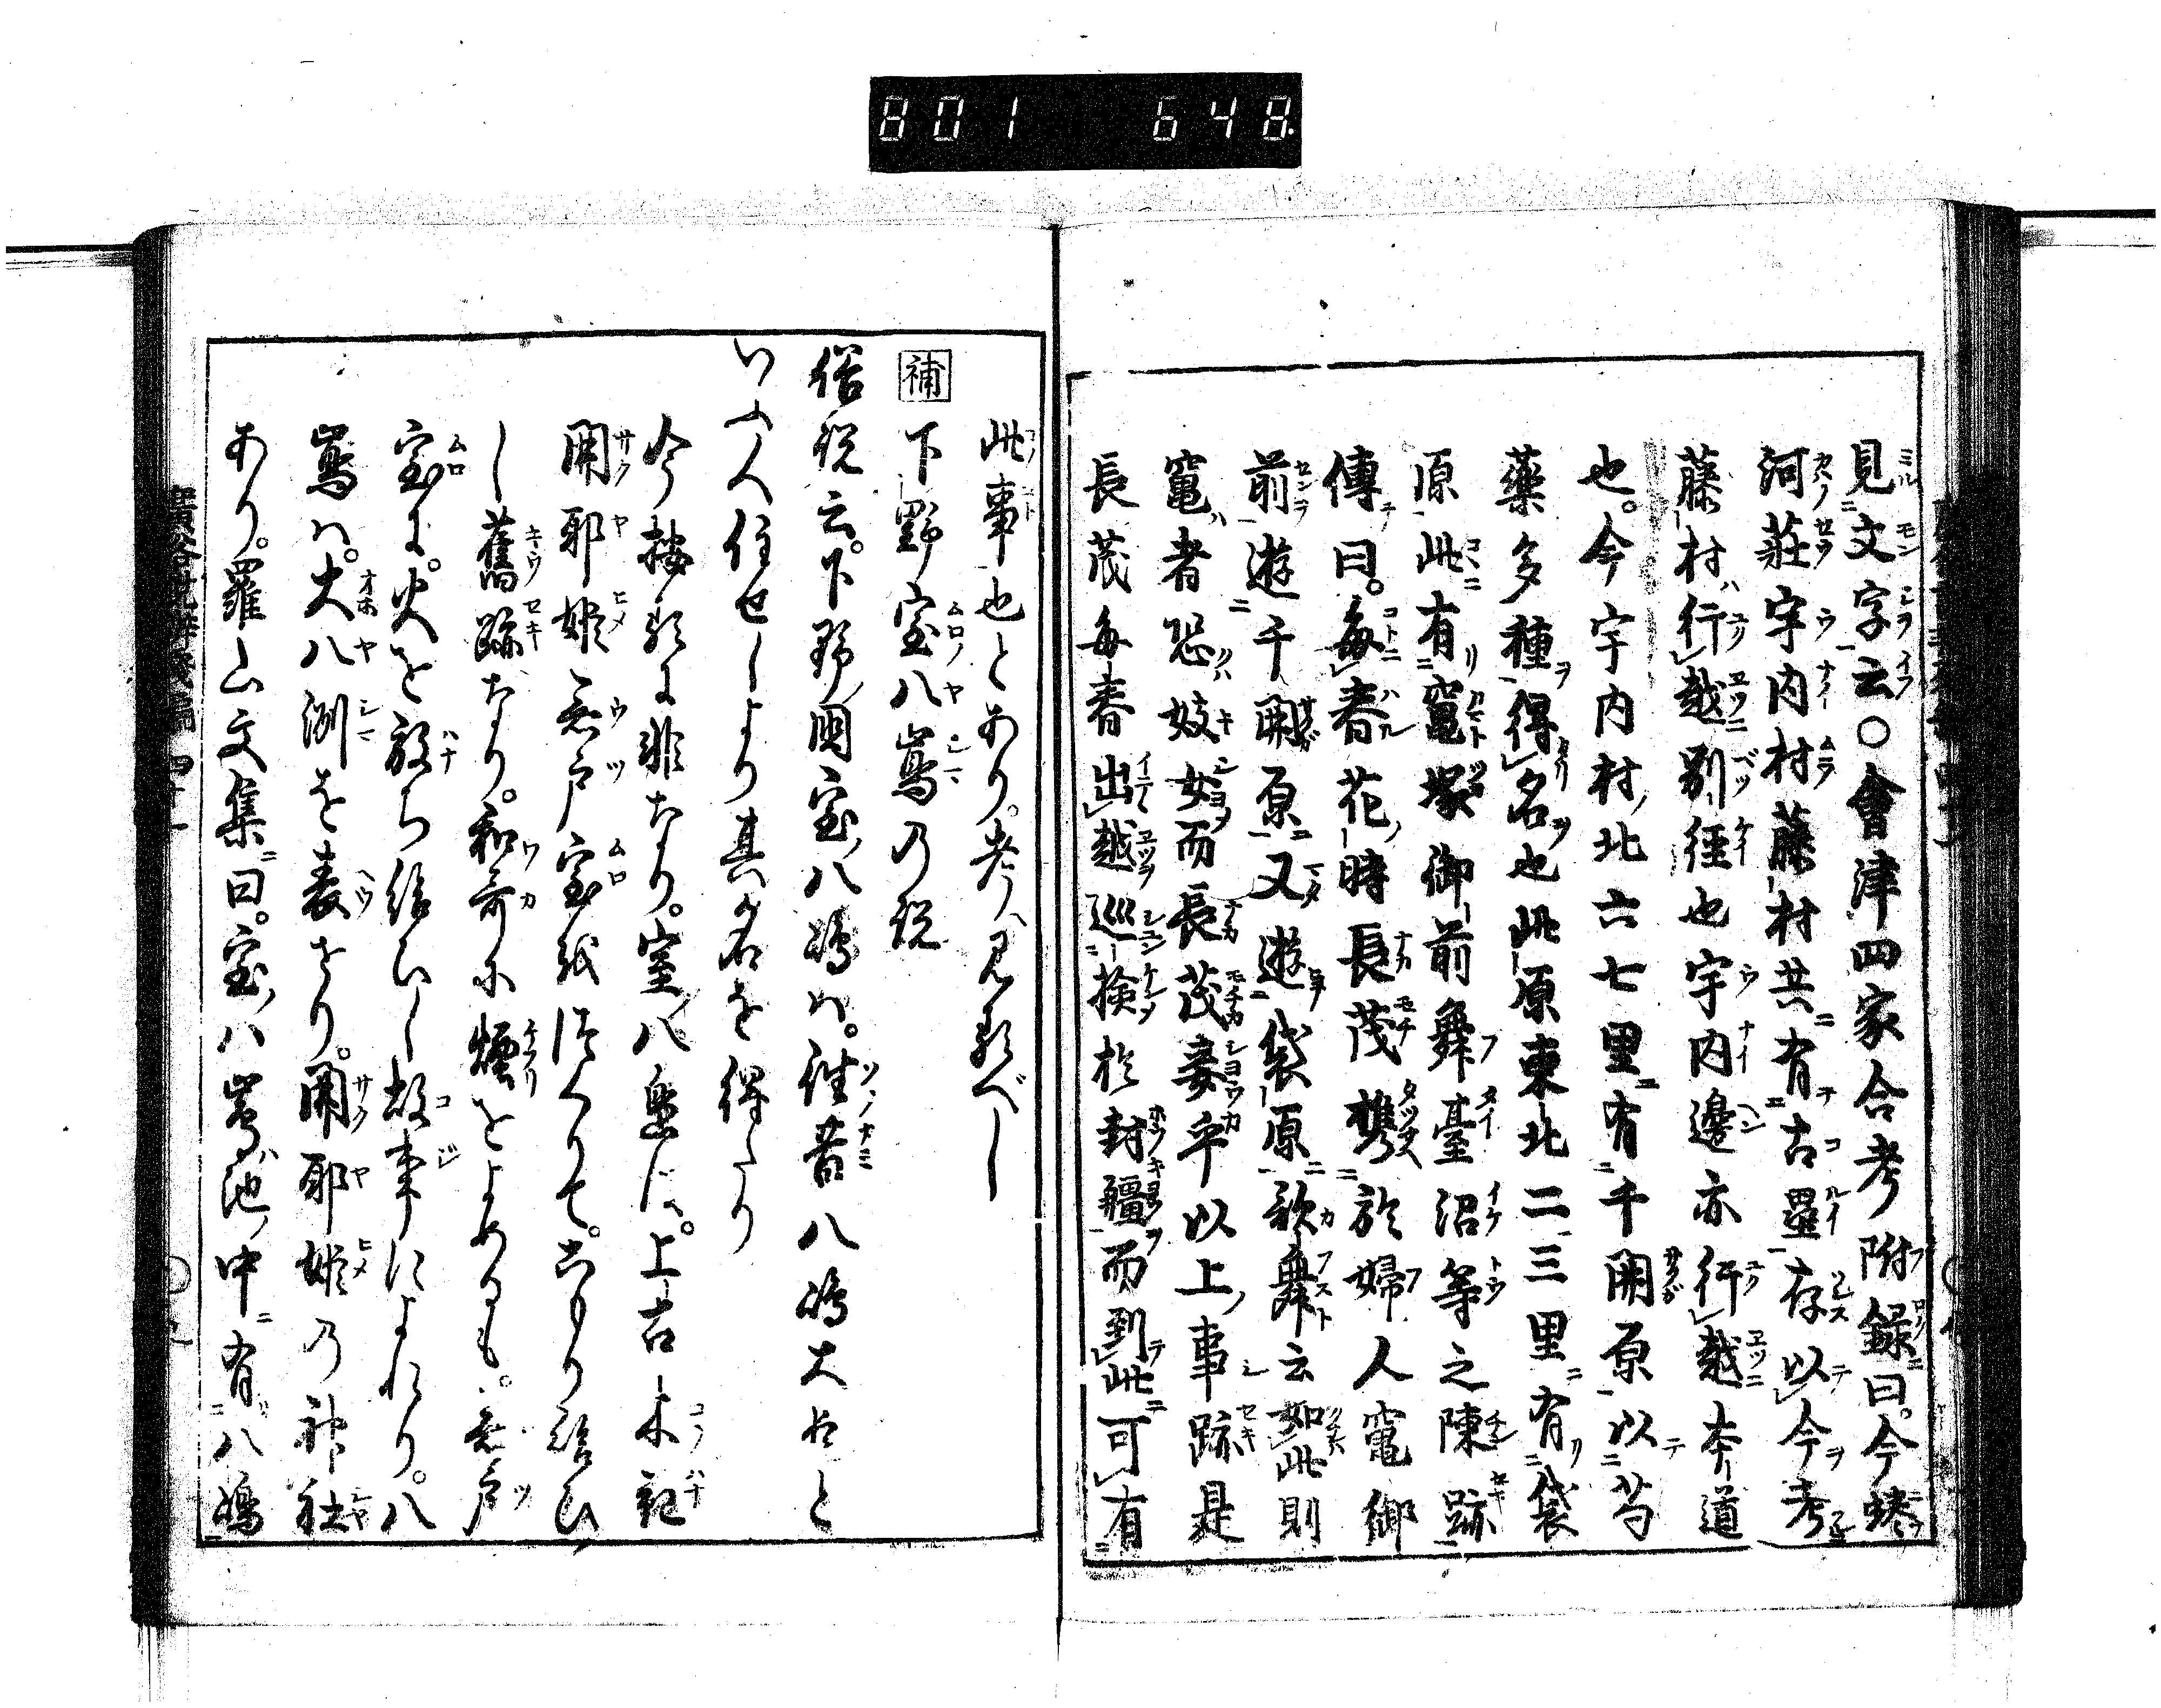 801 648
見文字云○會津四家合考附録曰。今蜷
河莊宇内村藤村共有古壘存以今考
藤村行越別径也宇内邊亦行越本道
也。今宇内村北六七里有千開原以芍
藥多種得名也此原東北二三里有袋
原此有竃塚御前舞臺沼等之陳跡
傳曰。毎春花時長茂携於婦人竃御
前遊千開原又遊袋原歌舞云如此則
竃者恐妓女而長茂妾乎以上事跡是
長茂毎春出越巡検於封疆而到此可有
此事也とあり。考へ見るべし
補 下野室八嶌乃説
俗説云。下野國室八嶋ハ。往昔八嶋大臣と
いふ人住せしより其名を得たり
今按るに非なり。室八嶌ハ。上古木花
開耶姫無戸室を作りて。こもり給ひ
し舊跡なり。和哥に煙をよめるも。無戸
室に。火を放ち給ひし故事によれり。八
嶌ハ。大八洲を表せり。開耶姫乃神社
あり。羅山文集曰。室八嶌池中有八嶋
廣益俗説弁残編 四十一